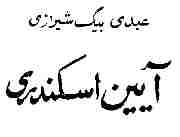 عبدی بیگ شیرازی
آیین اسکندری